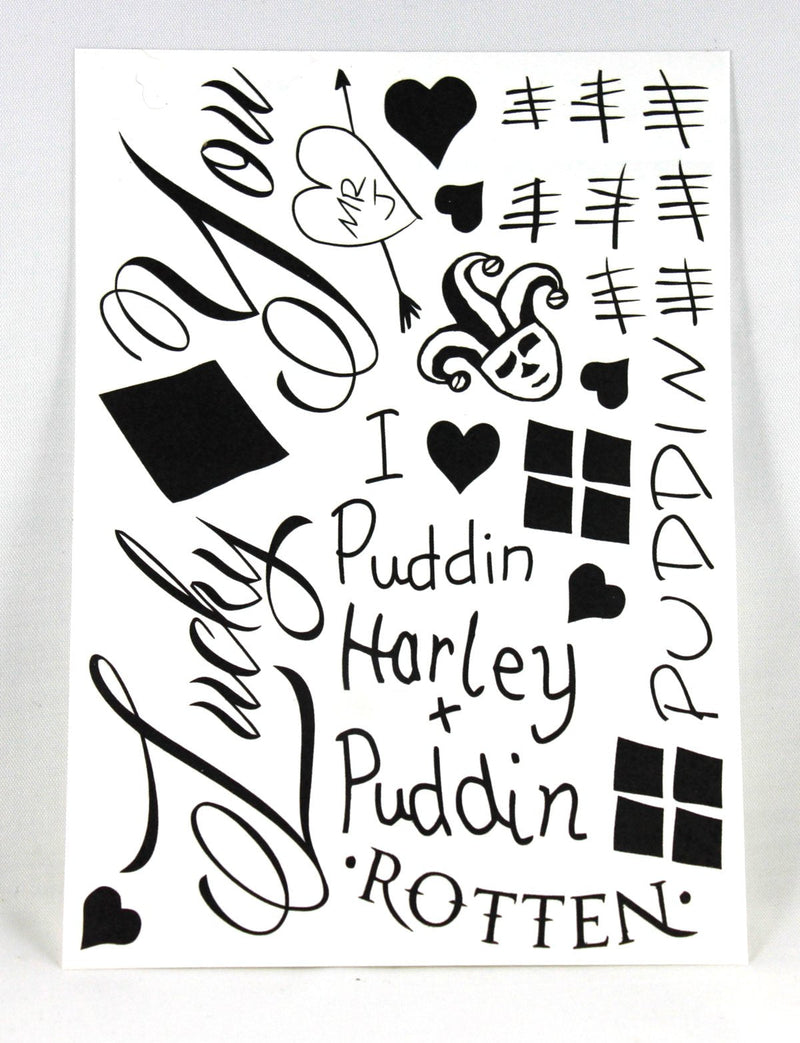 Lucky
You
MR
J
I
Puddin
Harley
+
Puddin
PUDDIN
ROTTEN